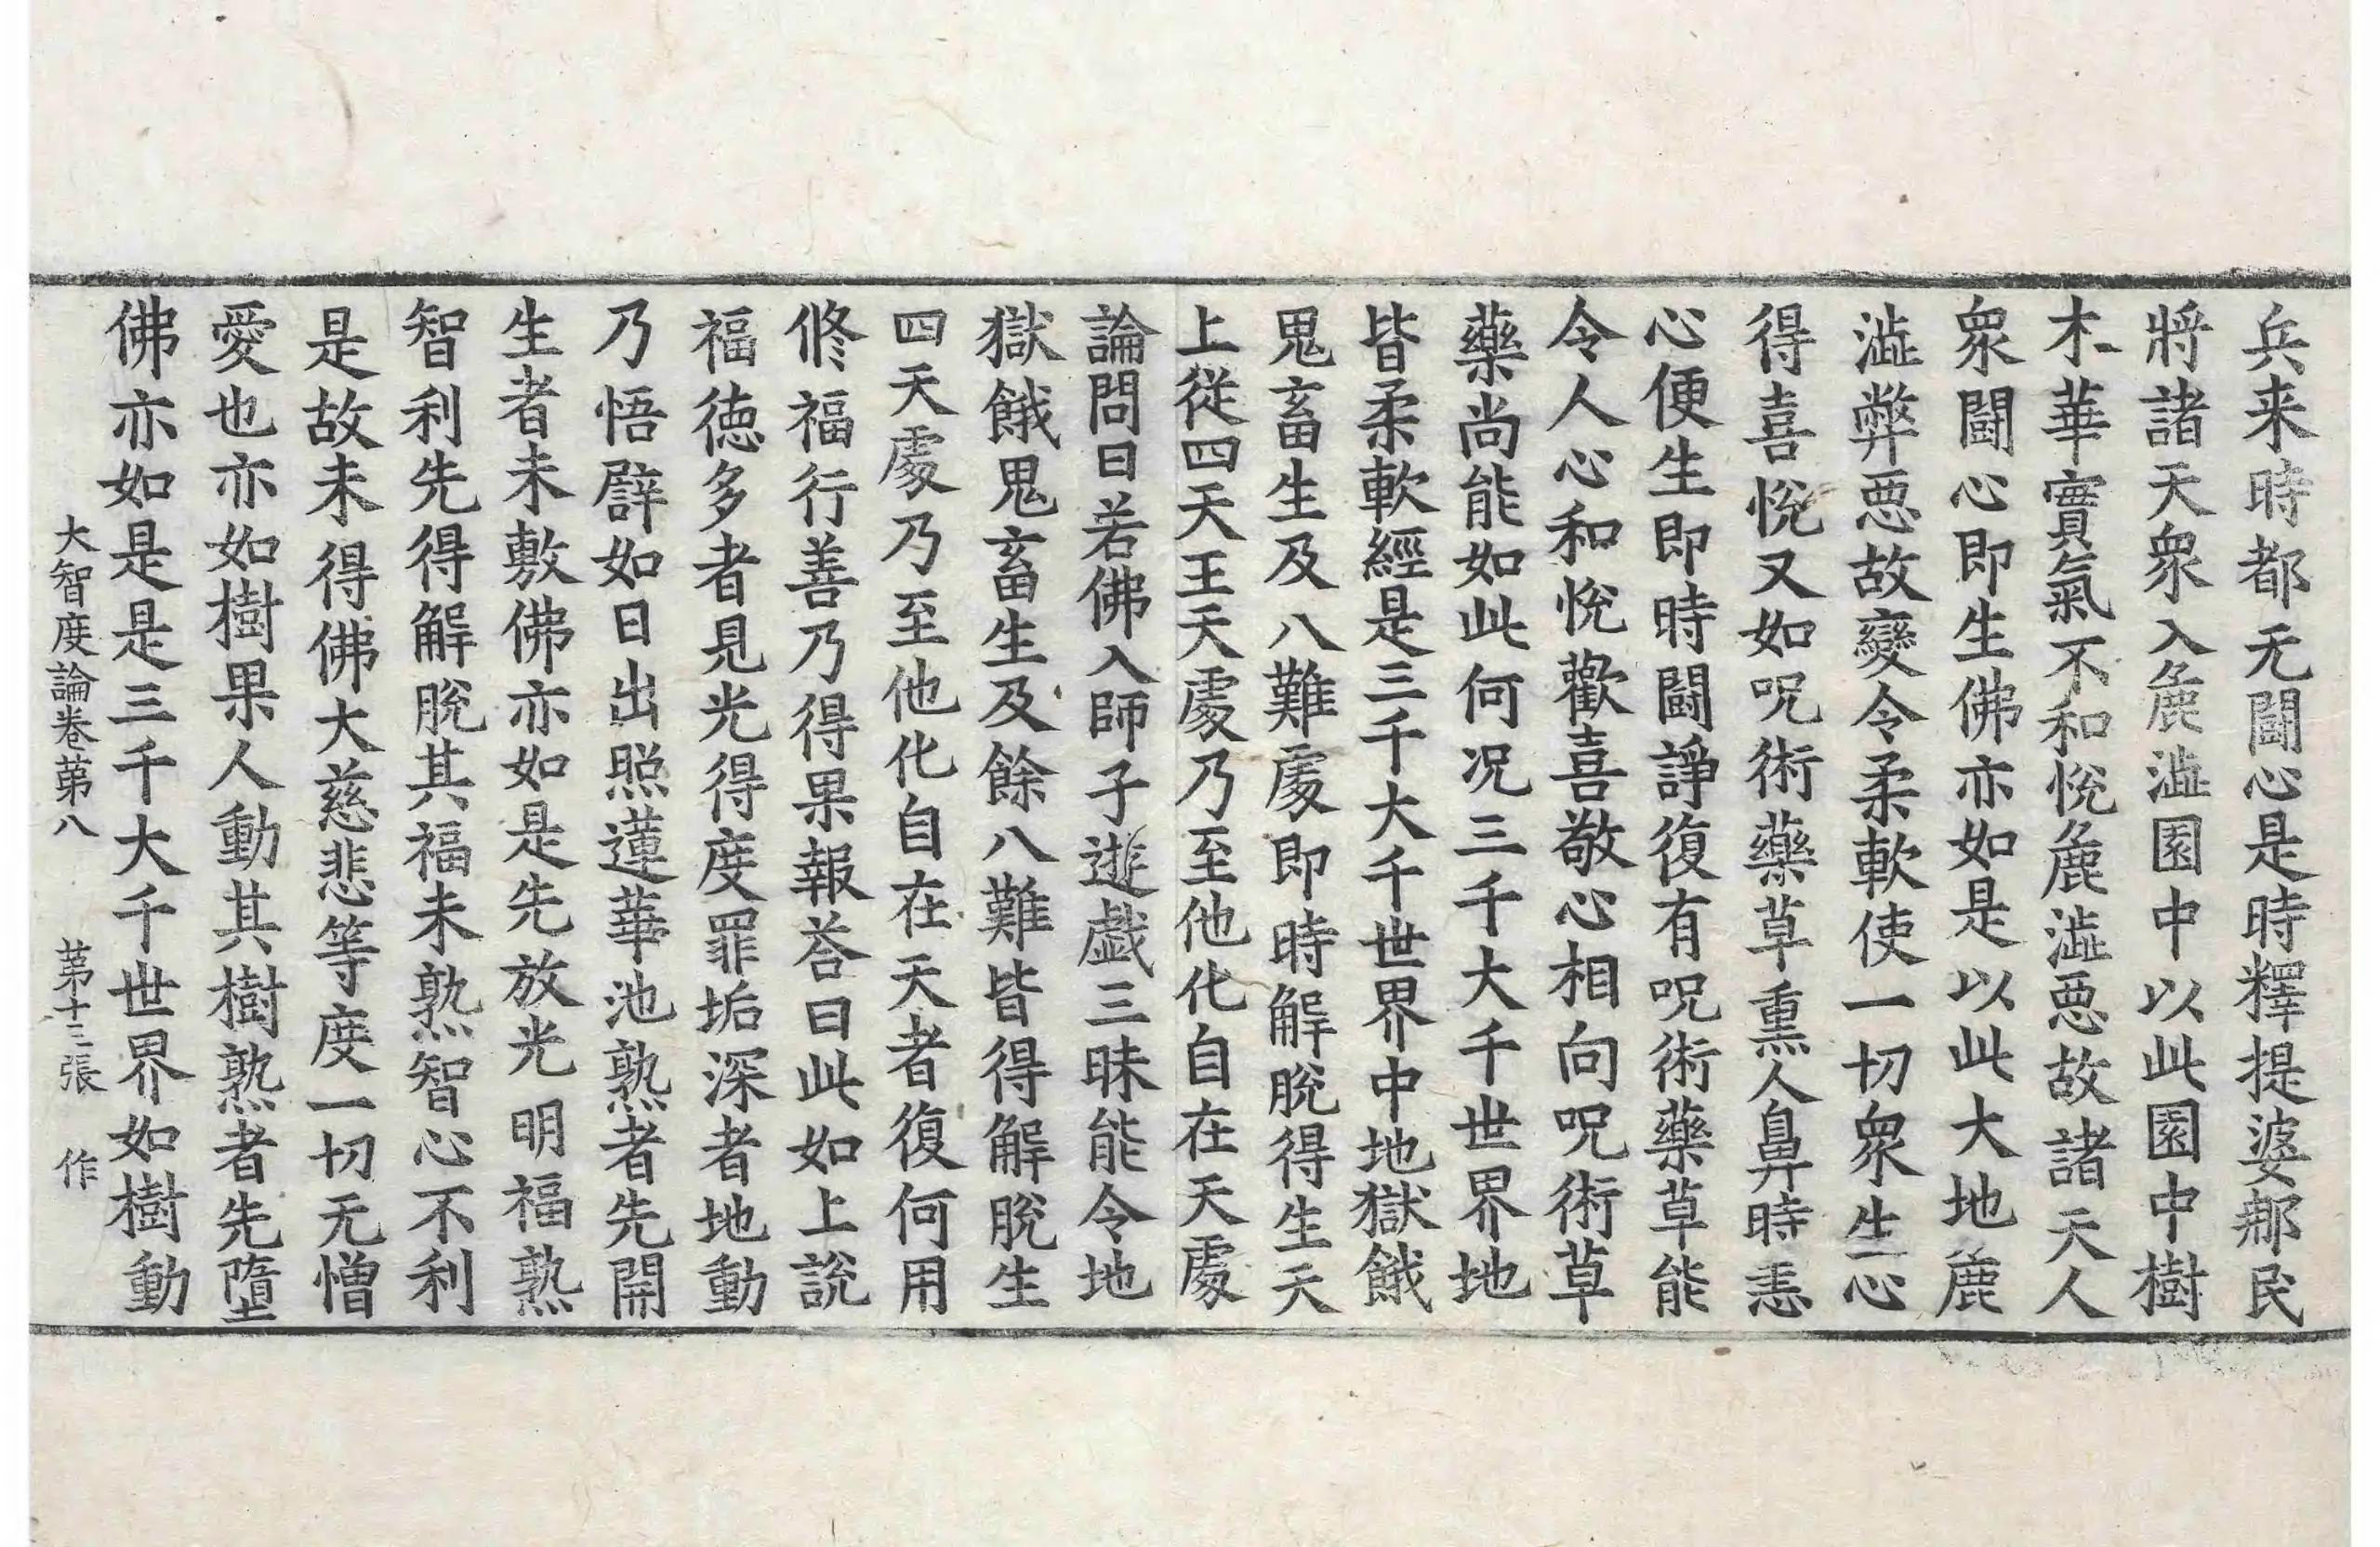 兵来時都无闘心是時釋提婆那民
將諸天衆入麁澁園中以此園中樹
木華實氣不和悅麁澁惡故諸天人
衆闘心即生佛亦如是以此大地麁
澁弊惡故變令柔軟使一切衆生心
得喜悅又如呪術藥草熏人鼻時恚
心便生即時闘諍復有呪術藥草能
令人心和悅歡喜敬心相向呪術草
藥尚能如此何况三千大千世界地
皆柔軟經是三千大千世界中地獄餓
鬼畜生及八難處即時解脫得生天
上從四天王天處乃至他化自在天處
論問曰若佛入師子遊戲三昧能令地
獄餓鬼畜生及餘八難皆得解脫生
四天處乃至他化自在天者復何用
修福行善乃得果報荅曰此如上說
福德多者見光得度罪垢深者地動
乃悟譬如日出照蓮華池熟者先開
生者未敷佛亦如是先放光明福熟
智利先得解脫其福未熟智心不利
是故未得佛大慈悲等度一切无憎
愛也亦如樹果人動其樹熟者先墮
佛亦如是是三千大千世界如樹動
大智度論卷第八 第十三張 作